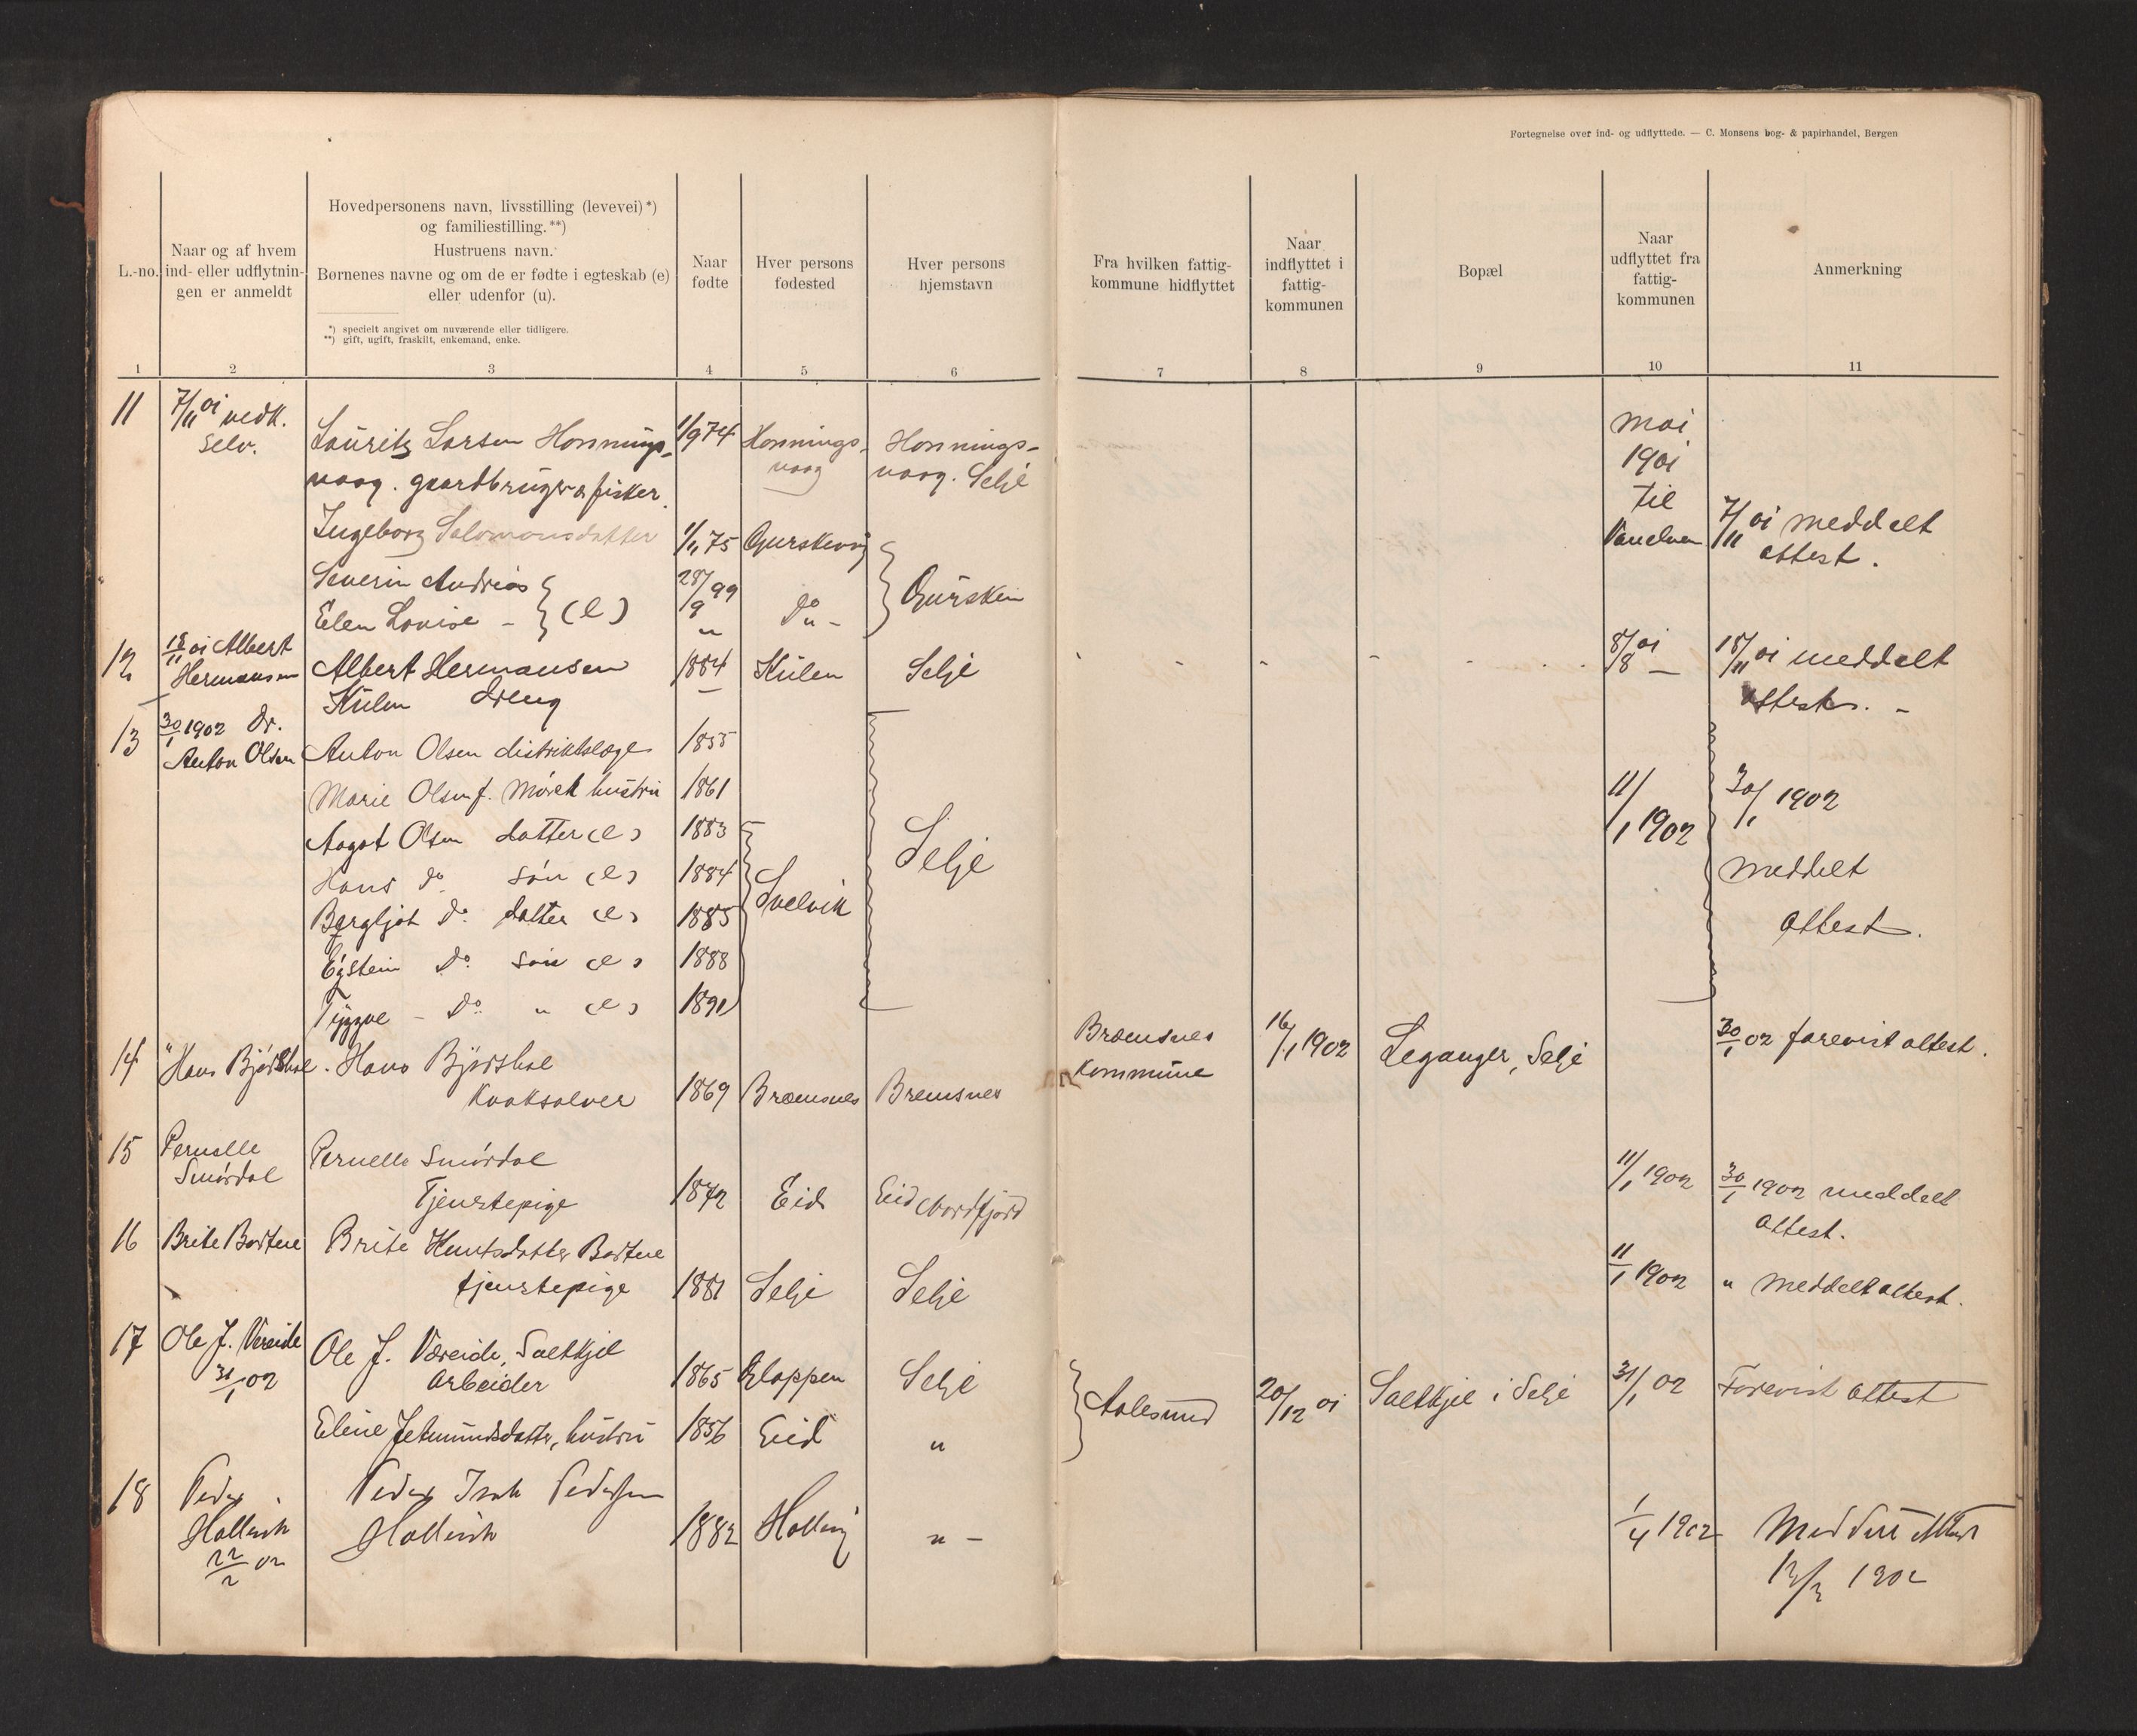 Fortegnelse over ind- og udflyttede. — C. Monsens bog- & papirhandel, Bergen
L.-no.
Naar og af hvem
ind- eller udflytnin-
gen er anmeldt
Hovedpersonens navn, livsstilling (levevei)*)
og familiestilling.**)
Hustruens navn.
Børnenes navne og om de er fødte i egteskab (e)
eller udenfor (u).
*) specielt angivet om nuværende eller tidligere.
**) gift, ugift, fraskilt, enkemand, enke.
Naar
fødte
Hver persons
fødested
Hver persons
hjemstavn
Fra hvilken fattig-
kommune hidflyttet
Naar
indflyttet i
fattig-
kommunen
Bopæl
Naar
udflyttet fra
fattig-
kommunen
Anmerkning
1 2 3 4 5 6 7 8 9 10 11
11 7/11 01 vedk.
selv.
Lauritz Larsen Honnings-
vaag. gaardbruger & fisker.
1/9 74 Honnings-
vaag
Honnings-
vaag. Selje
mai
1901
til
Vanelven
7/11 01 meddelt
attest.
Ingeborg Salomonsdatter 1/11 75 Gurskevig
Severin Andreas 28/9 99 do
Elen Lovise - (e) " " -
Gursken
12 18/11 01 Albert
Hermansen
Albert Hermansen 1884 Kulen Selje 8/8 01 18/11 01 meddelt
Kulen dreng
attest. -
13 30/1 1902 dr.
Anton Olsen
Anton Olsen distriktslæge 1855
Marie Olsen f. Mørch hustru 1861
Aagot Olsen datter (e) 1883
Hans do søn (e) 1884
Bergljot do. datter (e) 1885
Eystein do. søn (e) 1888
Tryggve - do. " (e) 1891
Svelvik
Selje
11/1 1902
30/1 1902
meddelt
attest.
14 " Hans Bjørshol. Hans Bjørshol
Kvaksalver 1869 Bræmsnes Bremsnes
Bræmsnes
kommune
16/1 1902 Leganger, Selje 30/1 02 forevist attest.
15 Pernelle
Smørdal
Pernelle Smørdal
Tjenstepige 1872 Eid Eid Nordfjord 11/1 1902 30/1 1902 meddelt
attest.
16 Brite Bortne Brite Knutsdatter Bortne
tjenstepige 1881 Selje Selje 11/1 1902 " meddelt attest.
17 Ole J. Vereide
31/1 02
Ole J. Væreide, Saltkjel
Arbeider 1865 Gloppen Selje
Eline Jetmundsdatter, hustru 1856 Eid "
Aalesund 20/12 01 Saltkjel i Selje 31/1 02 Forevist attest
18 Peder
22/2 02
Peder Isak Pedersen
1882 " - 1/4 1902 Meddelt attest